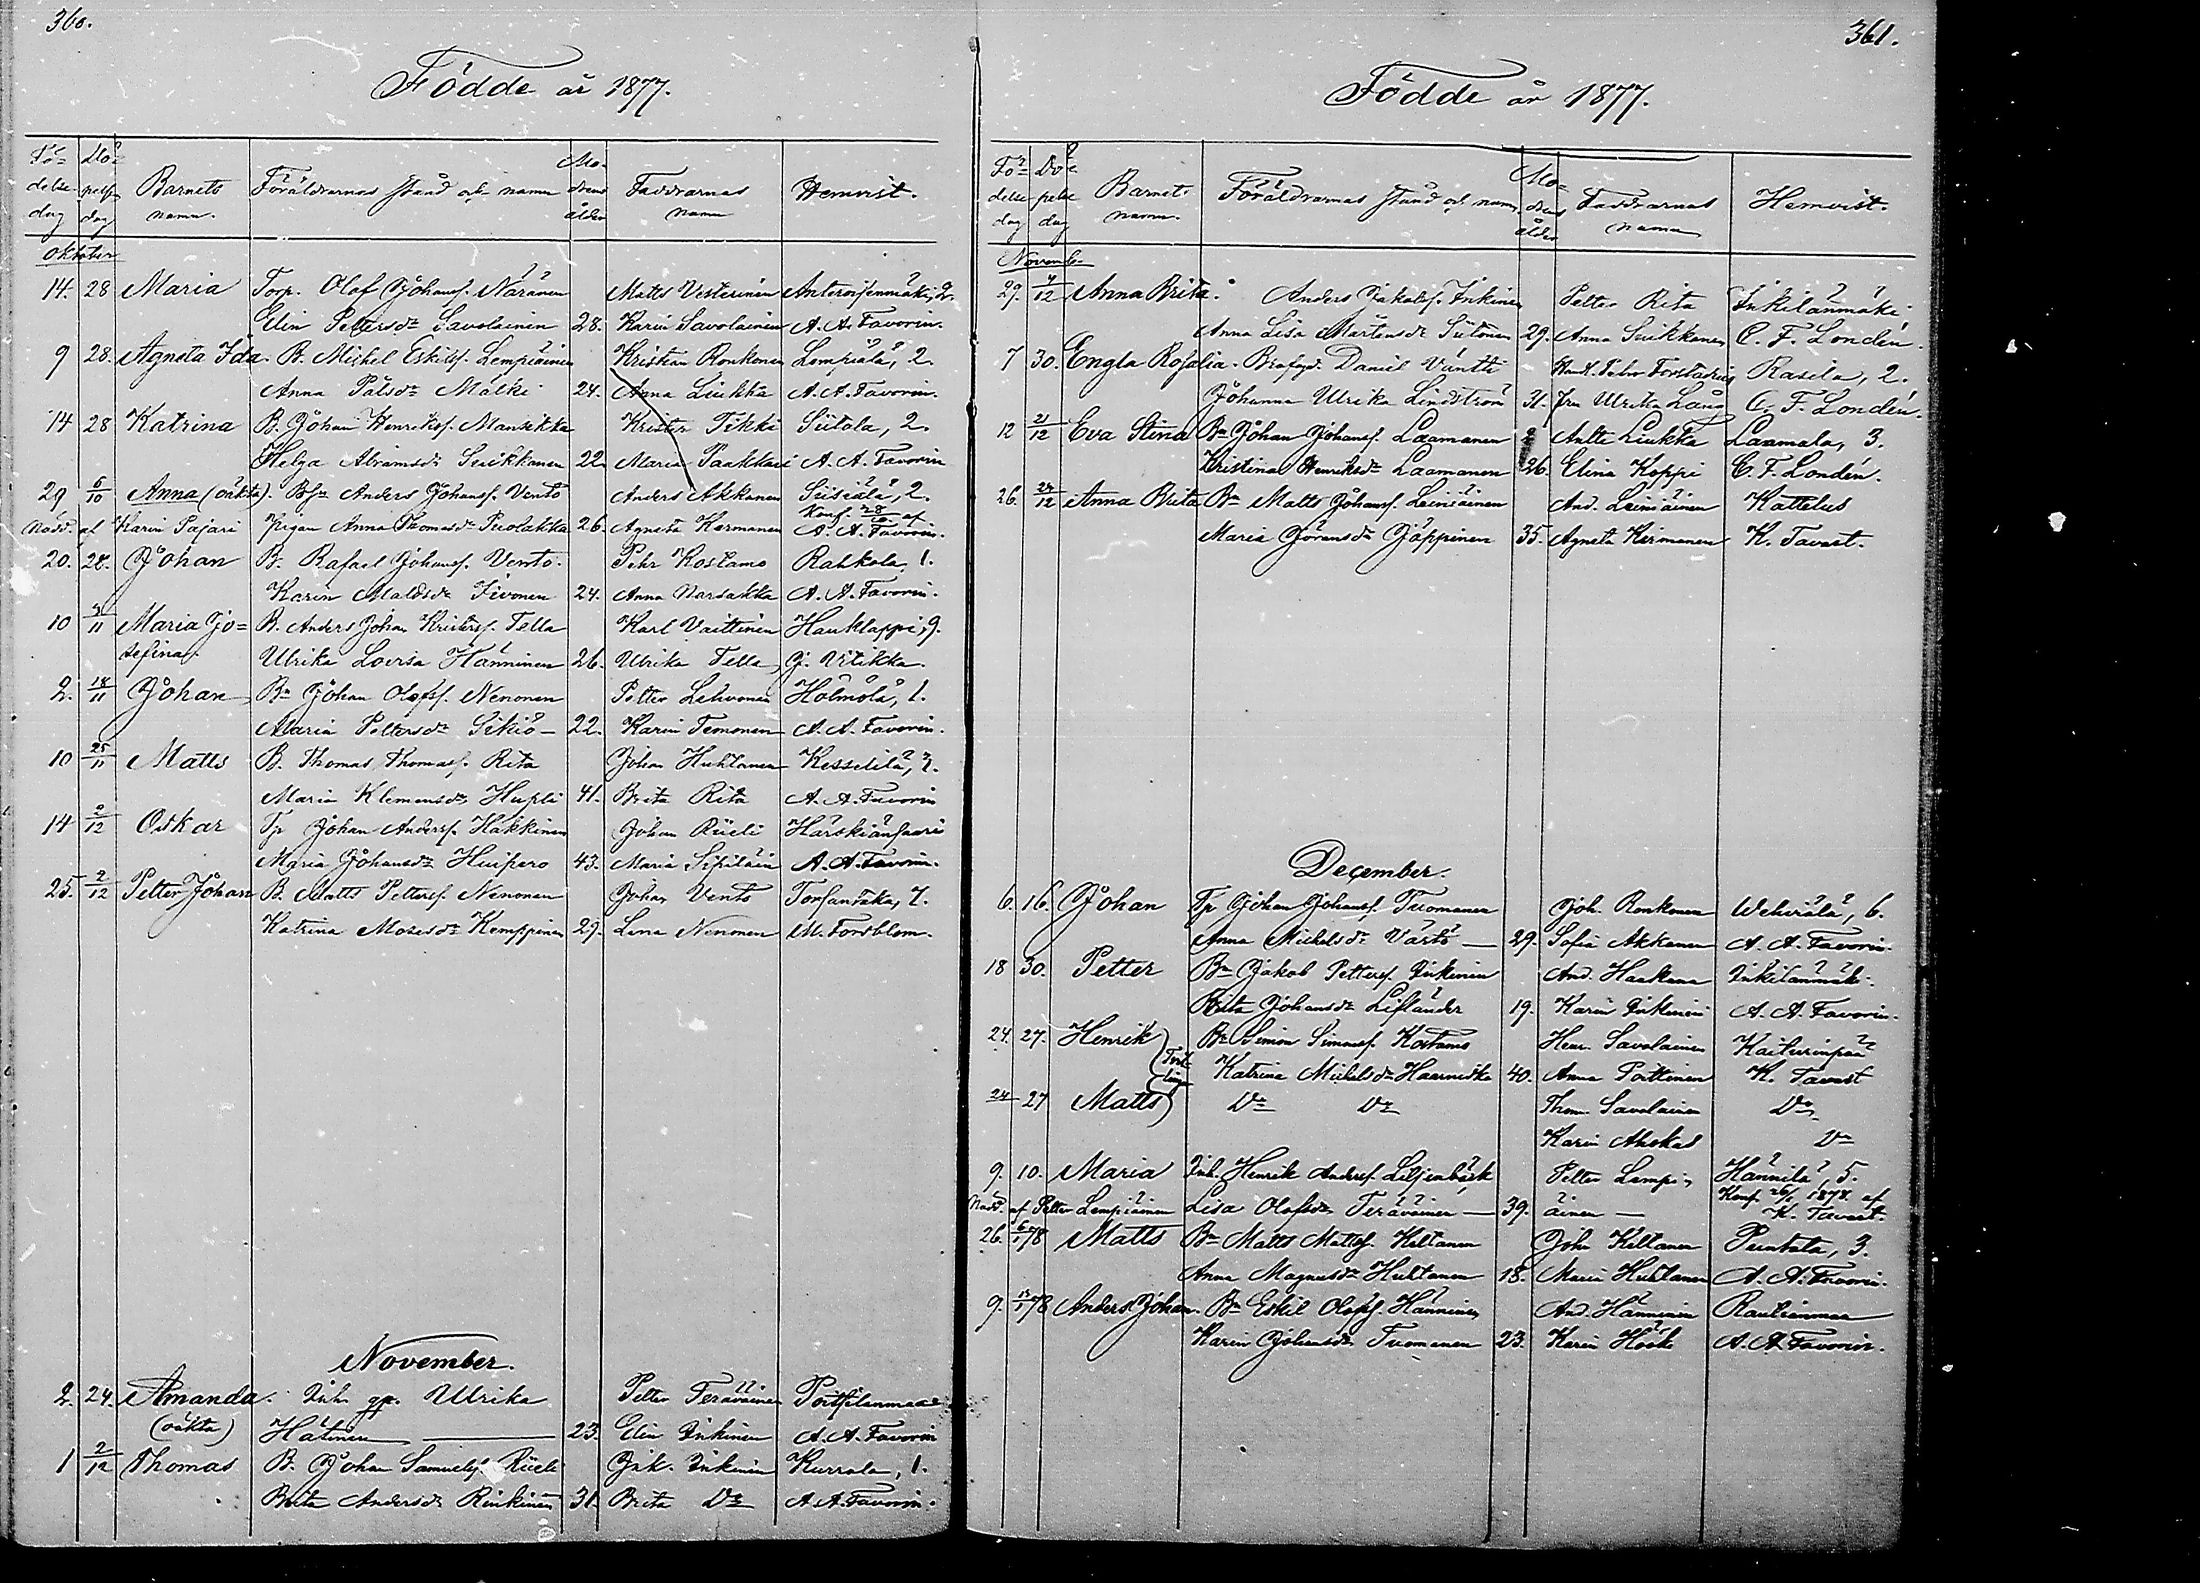 360.
Födde år 1877.
Fö- delse dag | Dö- pelse dag | Barnets namn. | Föräldrarnas stånd och namn | Mo- drens ålder | Faddrarnas namn | Hemvist.
Oktober
14. 28 Maria Torp. Olof Johansf. Näränen Matts Vesterinen
Elin Pettersdr Savolainen 28. Karin Savolainen A. A. Favorin.
9 28. Agneta Ida. B. Michel Eskilsf. Lempiäinen Kristian Ronkonen Lempiälä, 2.
Anna Pålsdr Mälki 24. Anna Liukka A. A. Favorin.
14 28 Katrina B. Johan Henriksf. Mansikka Krister Tikki Siitola, 2.
Helga Abramsdr Suikkanen 22. Maria Paakkari A. A. Favorin
29 Anna (oäkta). Anders Johansf. Vento Anders Akkanen Siisiälä, 2.
Nödd. af Karin Pajari Pigan Anna Thomasdr Puolakka 26. Agneta Karmanen Konf. 28/10 af A. A. Favorin.
20. 28. Johan B. Rafael Johansf. Vento. Pehr Kostamo Rahkola, 1.
Karin Mattsdr Sivonen 24. Anna Narsakka A. A. Favorin.
10 4/11 Maria Jo- B. Anders Johan Kristersf. Tella Karl Vaittinen Hauklappi, 9.
sefina. Ulrika Lovisa Hänninen 26. Ulrika Tella J. Vitikka.
2. 18/11 Johan Bn Johan Olofsf. Nenonen Petter Lehvonen Holmola, 1.
Maria Pettersdr Sikiö — 22. Karin Temonen A. A. Favorin.
10 25/11 Matts B. Thomas Thomasf. Rita Johan Huhtanen
Maria Klemensdr Hupli 41. Brita Rita A. A. Favorin
14 2/12 Oskar Tp Johan Andersf. Häkkinen Johan Rüeli Härskiänsaari
Maria Johansdr Huipero 43. Maria Sipiläin A. A. Favorin.
25. 2/12 Petter Johan B. Matts Pettersf. Nenonen Johan Vento
Katrina Mosesdr Kemppinen 29. Lena Nenonen M. Forsblom.
November.
2. 24. Amanda. Inh. gp. Ulrika Petter Teräväinen
(oäkta) Hätinen 23. Elin Inkinen A. A. Favorin
1 2/12 Thomas B. Johan Samuelsf. Rüeli Jak. Inkinen Kurrola, 1.
Brita Andersdr Rinkinen 31. Brita Do A. A. Favorin.
361.
Födde år 1877.
Fö- delse dag | Dö- pelse dag | Barnets namn. | Föräldrarnas stånd och namn. | Mo- drens ålder | Faddrarnas namn | Hemvist.
November
29. Anna Brita. Anders Jakobsf. Inkinen Petter Rita Inkilänmäki
Anna Lisa Mårtensdr Sutonen 29. Anna Suikkanen C. F. Londén.
7 30. Engla Rosalia. Daniel Väntti Rasila, 2.
Johanna Ulrika Lindström 31. fru Ulrika Lång C. F. Londén.
12 21/12 Eva Stina Bn Johan Johansf. Laamanen Antti Liukka Laamala, 3.
Kristina Henriksdr Laamanen 26. Elina Koppi C. F. Londén.
26. Anna Brita Bn Matts Johansf. Leiniäinen And. Leiniäinen Kattelus
Maria Göransdr Jäppinen 35. Agneta Kirmanen K. Tavast.
December.
6. 16. Johan Tp Johan Johansf. Tuomanen Joh. Ronkonen
Anna Michelsdr Västö — 29. Sofia Akkanen A. A. Favorin.
18 30. Petter Bn Jakob Pettersf. Inkinen And. Haakana Inkilänmäki
Brita Johansdr Lifländer 19. Karin Inkinen A. A. Favorin.
24. 27. Henrik Bn Simon Simonsf. Kostamo Henr. Savolainen
Tvil- lingar Katrina Michelsdr Haarnidka 40. Anna Poittinen K. Tavast
24 27 Matts Do Do Thom. Savolainen Do
Karin Ahokas Do
9. 10. Maria Inh. Henrik Andersf. Liljenbäck Petter Lempi- Hännilä, 5.
Nödd. af Petter Lempiäinen Lisa Olofsdr Teräväinen — 39. äinen — Konf. 1878 af K. Tavast.
26. 6/1 78 Matts Bn Matts Mattsf. Kiltanen Joh. Kiltanen
Anna Magnusdr Huhtanen 18. Maria Huhtanen A. A. Favorin.
9. 13/1 78 Anders Johan. Bn Eskil Olofsf. Hänninen And. Hänninen Rautianmaa
Karin Johansdr Tuomanen 23. Karin Höök A. A. Favorin.